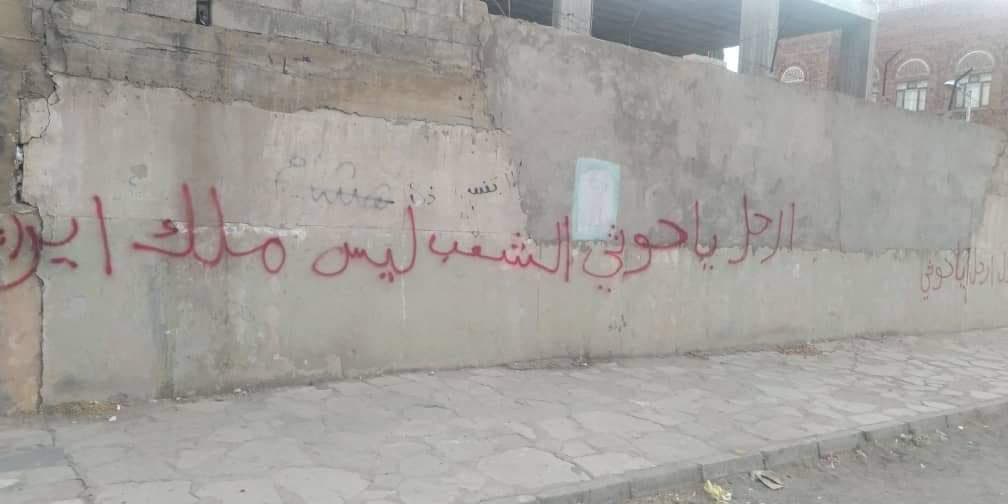 ارحل ياحوثي الشعب ليس ملك ايران
ارحل ياحوثي